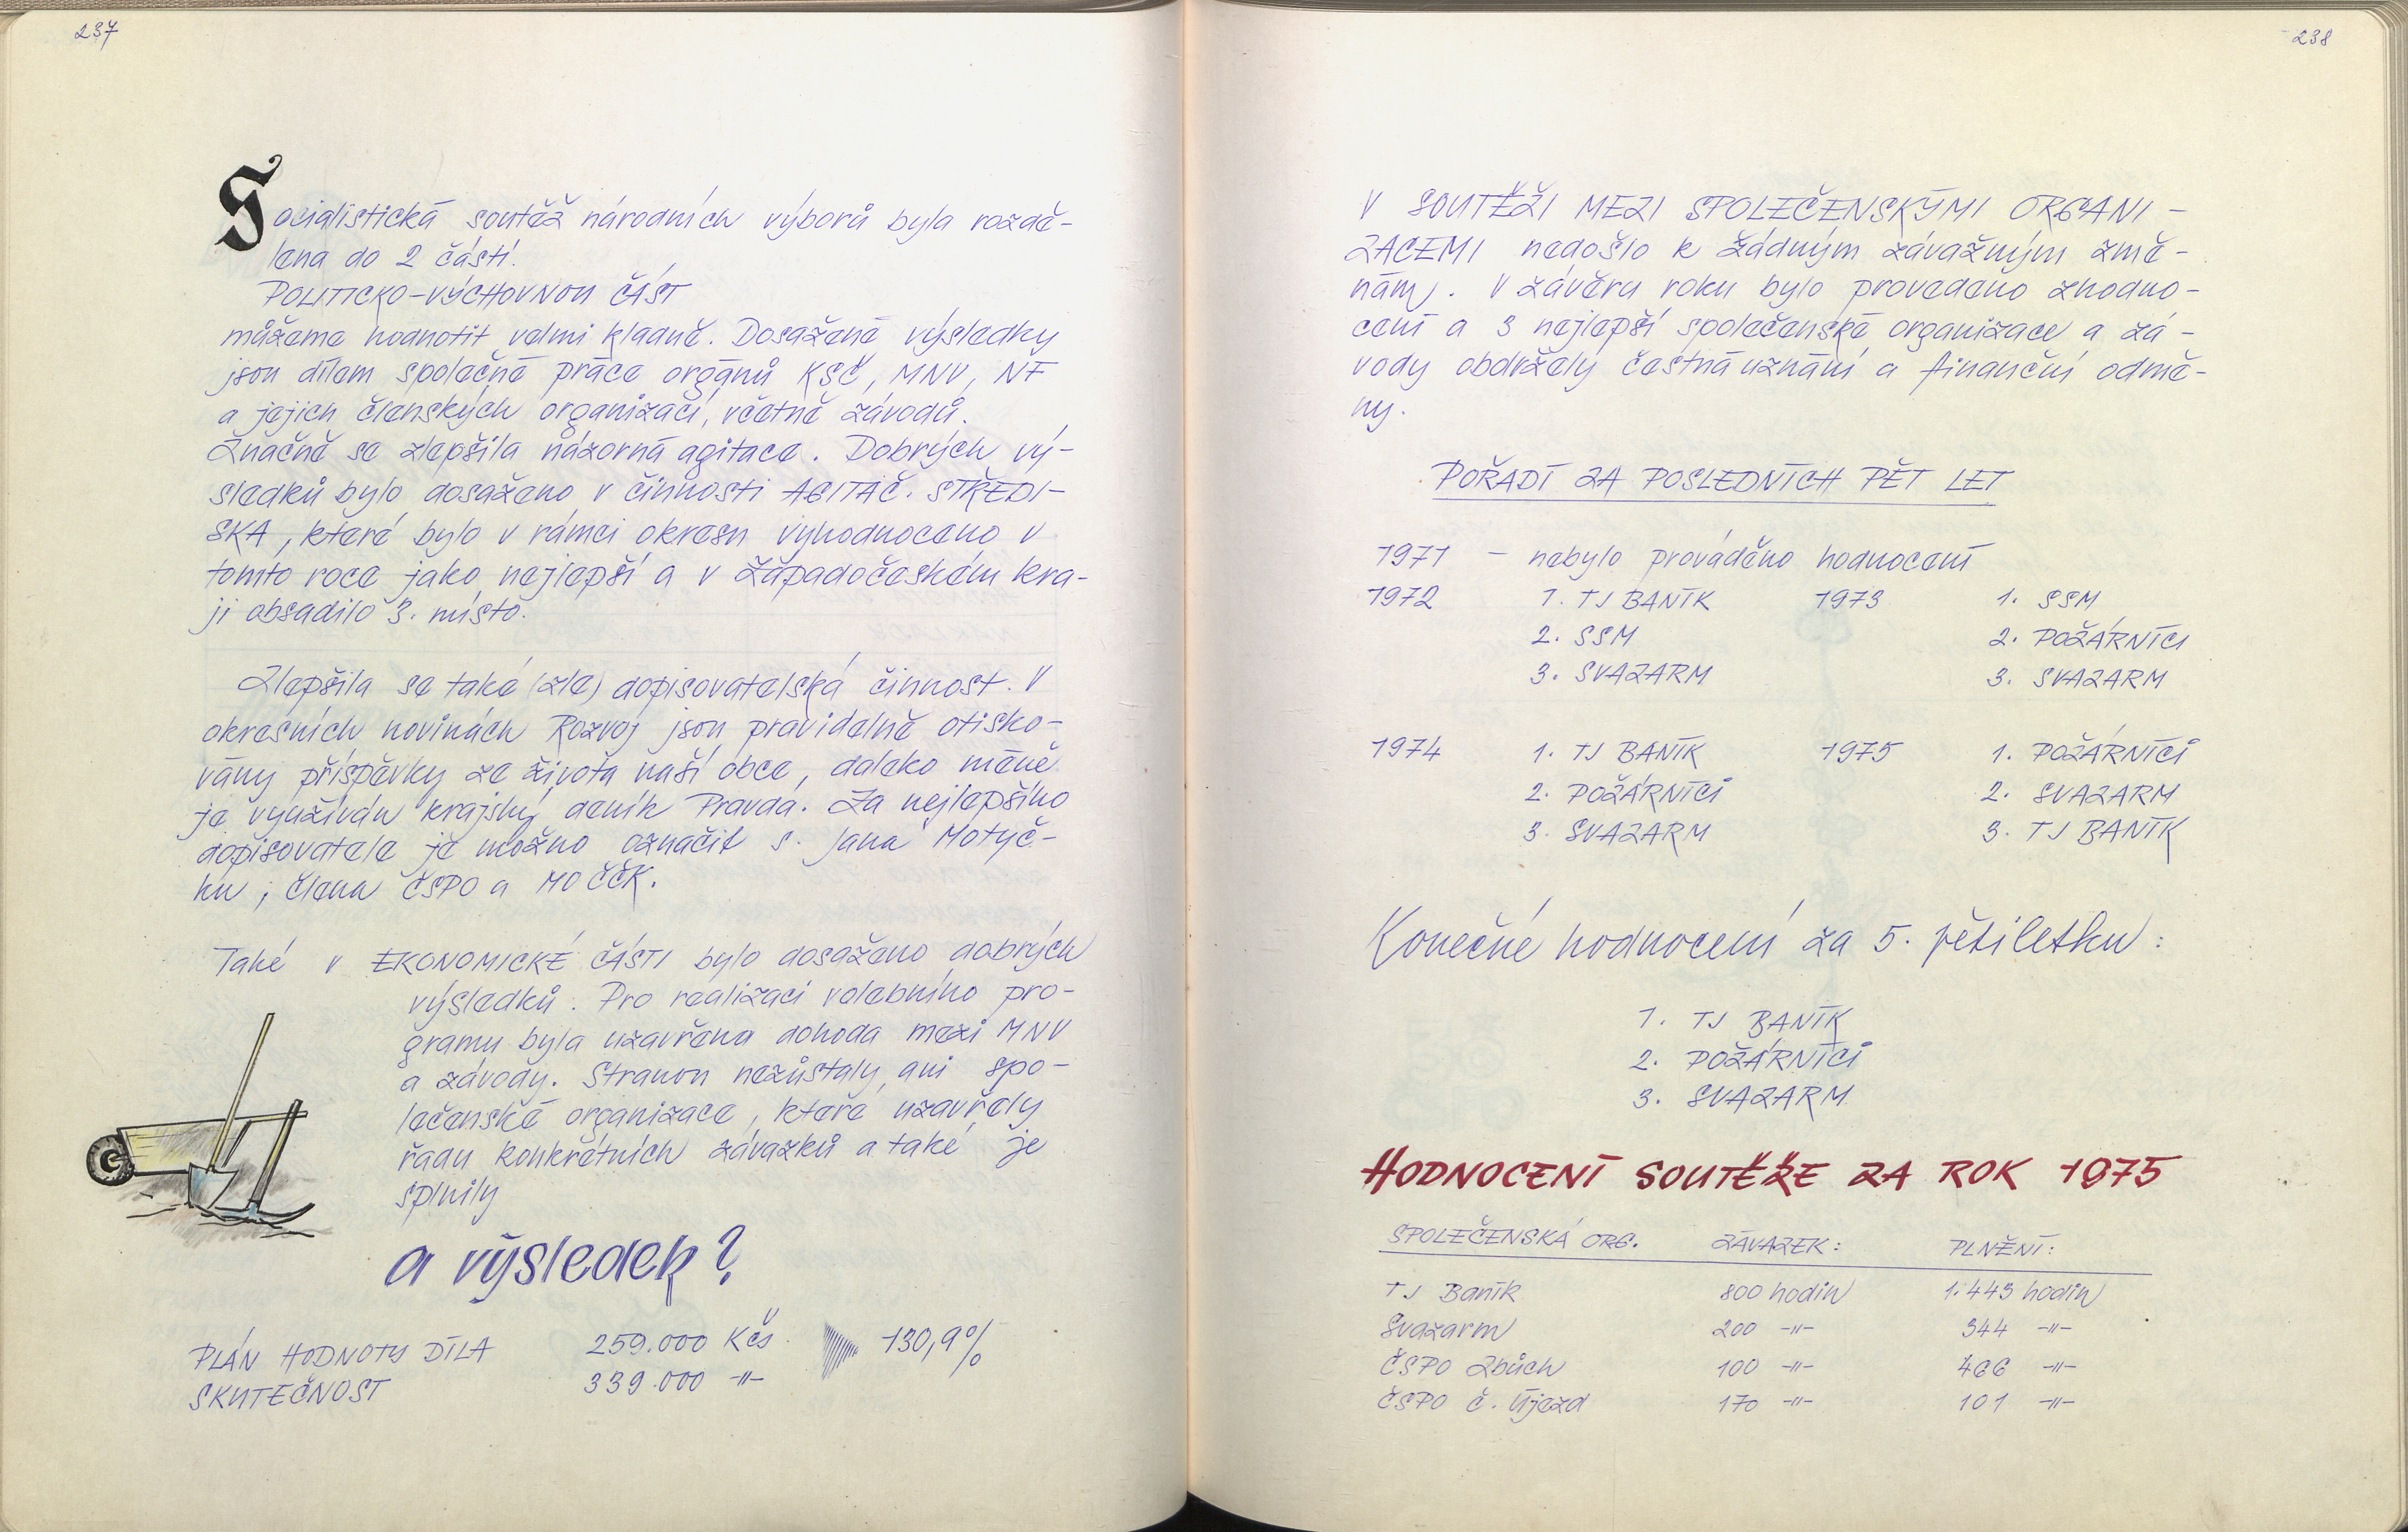 237
Socialistická soutěž národních výborů byla rozdě-
lena do 2 částí.
POLITICKO-VÝCHOVNOU ČÁST
můžeme hodnotit velmi kladně. Dosažené výsledky
jsou dílem společné práce orgánů KSČ, MNV, NF
a jejich členských organizací, včetně závodů.
Značně se zlepšila názorná agitace. Dobrých vý-
sledků bylo dosaženo v činnosti AGITAČ. STŘEDI-
SKA, které bylo v rámci okresu vyhodnoceno v
tomto roce jako nejlepší a v Západočeském kra-
ji obsadilo 3. místo.
Zlepšila se také (zle) dopisovatelská činnost. V
okresních novinách Rozvoj jsou pravidelně otisko-
vány příspěvky ze života naší obce, daleko méně
je využíván krajský deník Pravda. Za nejlepšího
dopisovatele je možno označit s. Jana Motyč-
ku, člena ČSPO a MO ČČK.
Také v EKONOMICKÉ ČÁSTI bylo dosaženo dobrých
výsledků. Pro realizaci volebního pro-
gramu byla uzavřena dohoda mezi MNV
a závody. Stranou nezůstaly ani spo-
lečenské organizace, které uzavřely
řadu konkrétních závazků a také je
splnily
a výsledek?
PLÁN HODNOTY DÍLA 259.000 Kčs 130,9%
SKUTEČNOST 339.000 -"-
238
V SOUTĚŽI MEZI SPOLEČENSKÝMI ORGANI-
ZACEMI nedošlo k žádným závažným změ-
nám. V závěru roku bylo provedeno zhodno-
cení a 3 nejlepší společenské organizace a zá-
vody obdržely čestná uznání a finanční odmě-
ny.
POŘADÍ ZA POSLEDNÍCH PĚT LET
1971 - nebylo prováděno hodnocení
1972 1. TJ BANÍK 1973 1. SSM
2. SSM 2. POŽÁRNÍCI
3. SVAZARM 3. SVAZARM
1974 1. TJ BANÍK 1975 1. POŽÁRNÍCI
2. POŽÁRNÍCI 2. SVAZARM
3. SVAZARM 3. TJ BANÍK
Konečné hodnocení za 5. pětiletku:
1. TJ BANÍK
2. POŽÁRNÍCI
3. SVAZARM
HODNOCENÍ SOUTĚŽE ZA ROK 1975
SPOLEČENSKÁ ORG. ZÁVAZEK: PLNĚNÍ:
TJ Baník 800 hodin 1.443 hodin
Svazarm 200 -"- 344 -"-
ČSPO Zbůch 100 -"- 466 -"-
ČSPO Č. Újezd 170 -"- 101 -"-